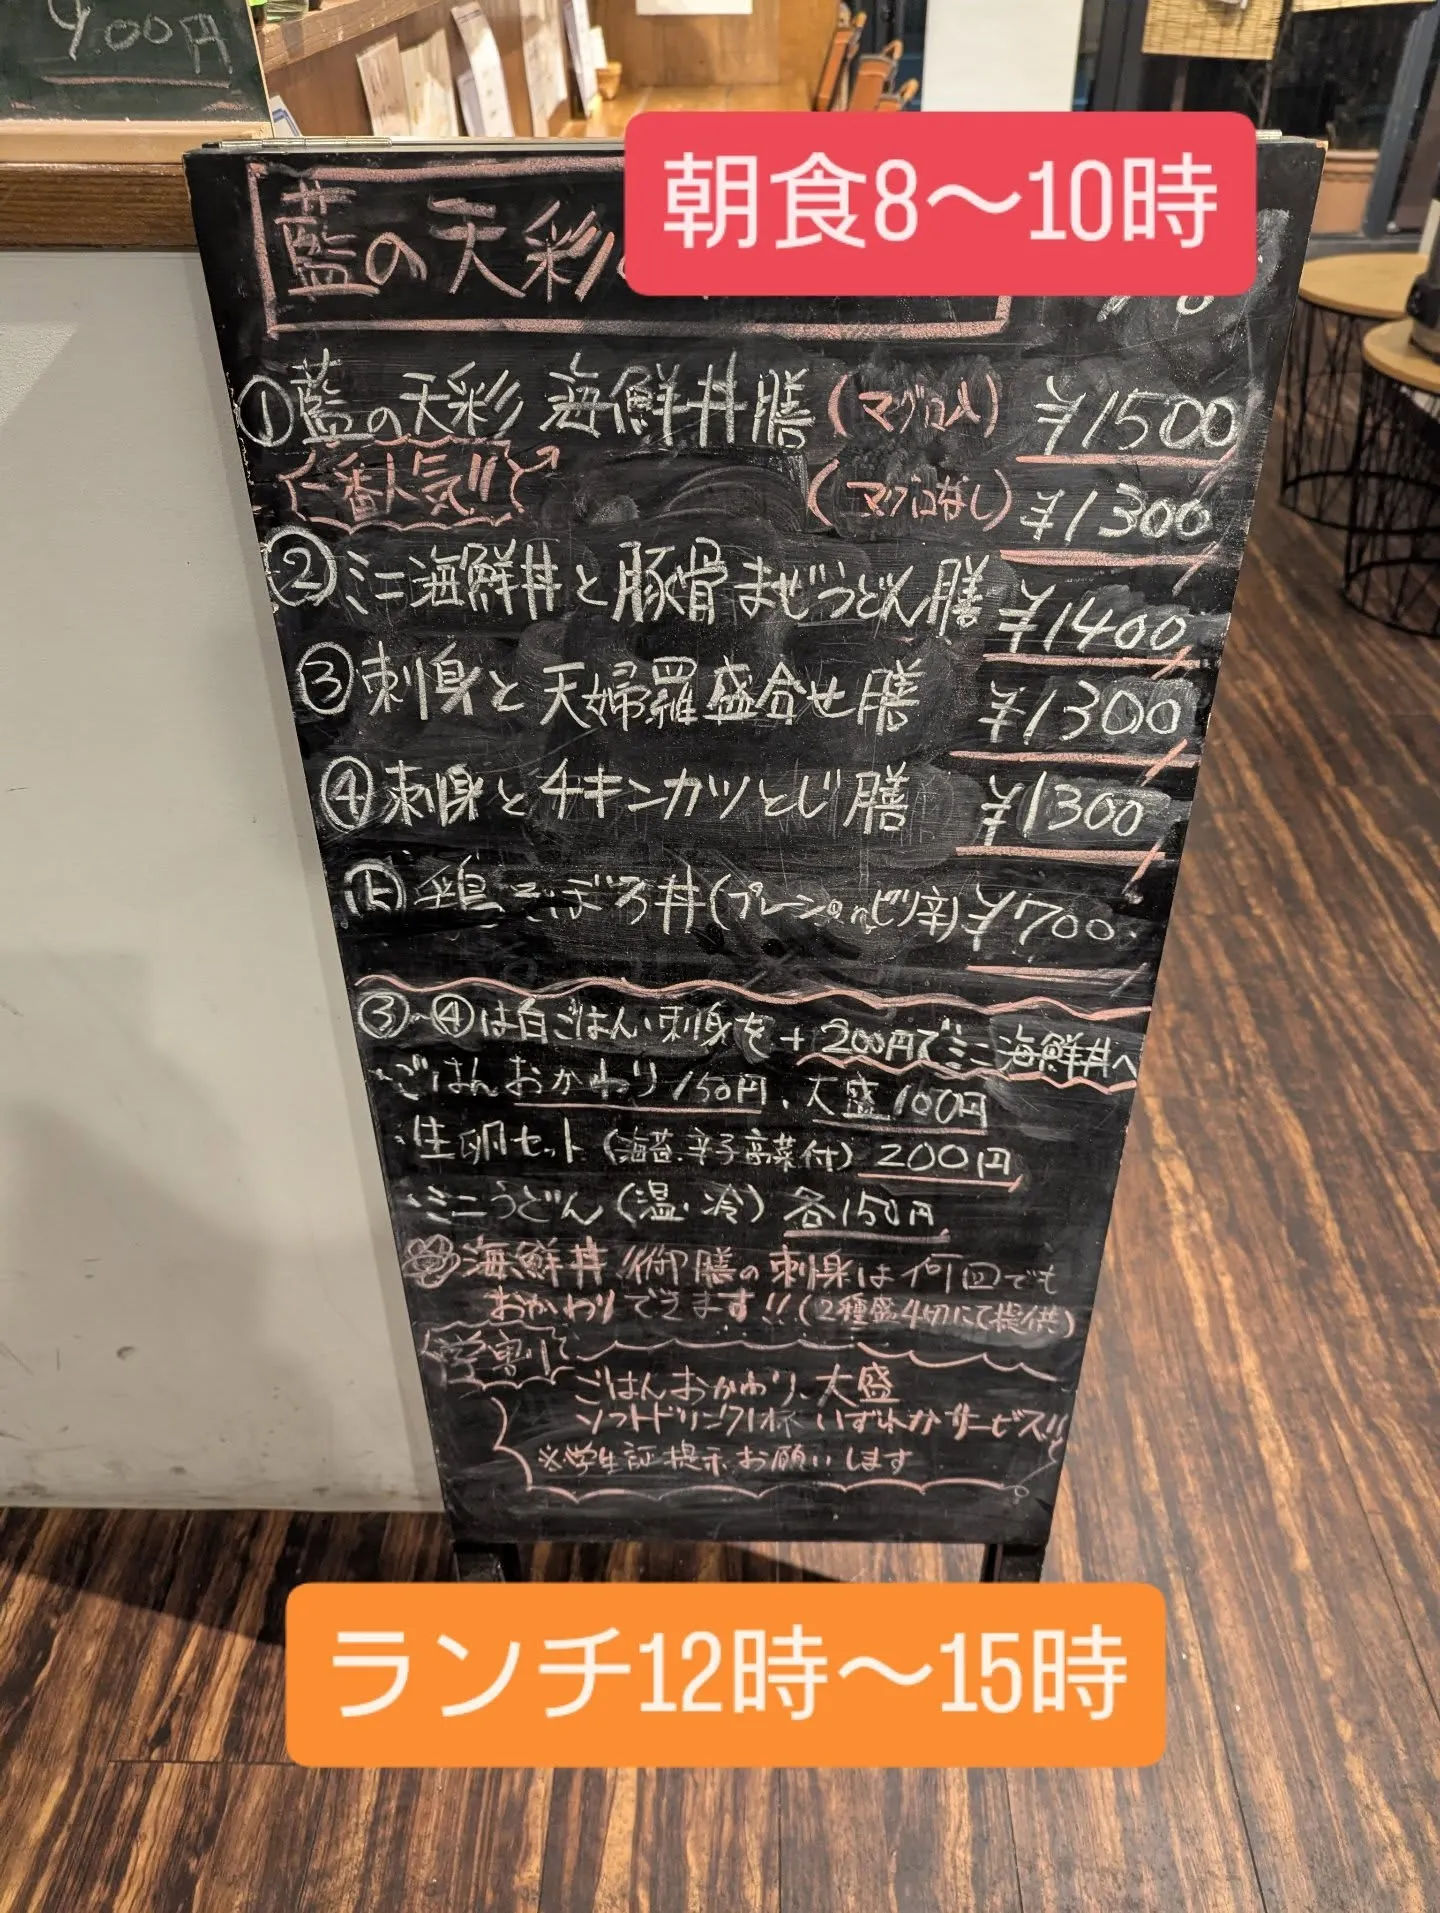 900円
朝食8〜10時
藍の天彩
①藍の天彩 海鮮丼膳(マグロ入) ¥1500
一番人気!! (マグロなし) ¥1300
②ミニ海鮮丼と豚骨まぜうどん膳 ¥1400
③刺身と天婦羅盛合せ膳 ¥1300
④刺身とチキンカツとじ膳 ¥1300
鶏そぼろ丼(プレーン ピリ辛) ¥700
③〜④は白ごはん、刺身を+200円でミニ海鮮丼へ
・ごはんおかわり150円、大盛100円
・生卵セット(海苔、辛子高菜付)200円
・ミニうどん(温・冷)各150円
海鮮丼 御膳の刺身は何回でも
おかわりできます!!(2種盛4切にて提供)
学割
ごはんおかわり、大盛
ソフトドリンク1杯 いずれかサービス!!
※学生証提示お願いします
ランチ12時〜15時